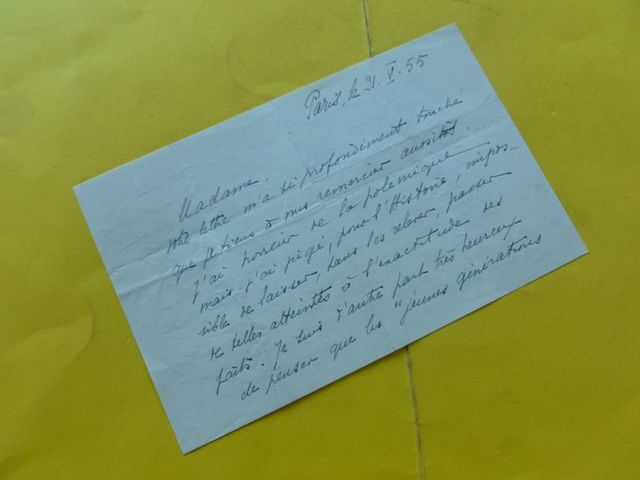 Paris, le 21. V. 55
Madame,
votre lettre m'a si profondément touché
que je tiens à vous remercier aussitôt.
J'ai horreur de la polémique
mais j'ai jugé, pour l'Histoire, impos-
sible de laisser, sans les relever, passer
de telles atteintes à l'exactitude des
faits. Je suis d'autre part très heureux
de penser que les "jeunes générations